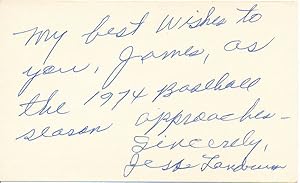 My best wishes to
you, James, as
the 1974 Baseball
season approaches -
Sincerely,
Jess Landrum